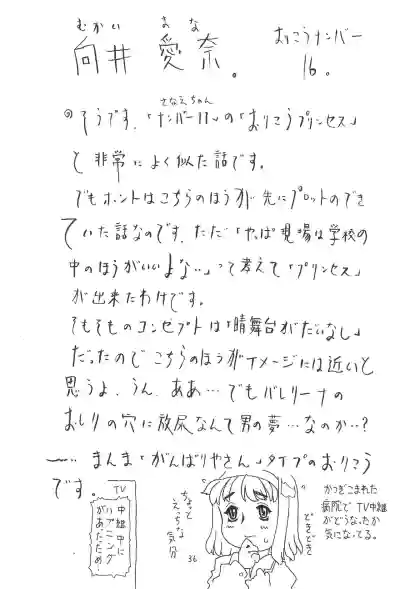 むかい まな
向井 愛奈。
おりこうナンバー
16。
◎そうです、「ナンバー11」の「おりこうプリンセス」
さなえちゃん
と非常によく似た話です。
でもホントはこちらのほうが先にプロットのでき
ていた話なのです、ただ「やっぱ現場は学校の
中のほうがいいよな…」って考えて「プリンセス」
が出来たわけです。
そもそものコンセプトは「晴舞台がだいなし」
だったのでこちらのほうがイメージには近いと
思うよ、うん、ああ…でもバレリーナの
おしりの穴に放尿なんて男の夢…なのか…?
まんま「がんばりやさん」タイプのおりこう
です。
TV
中継中に
ハプニング
があったため
ちょっと
えっちな
気分
36
どきどき
かつぎこまれた
病院でTV中継
がどうなったか
気になってる。